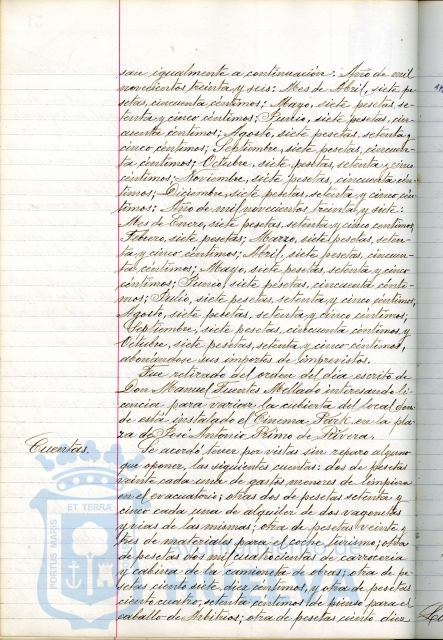 san igualmente a continuación: Año de mil
novecientos treinta y seis: Mes de Abril, siete pe-
setas, cincuenta céntimos; Mayo, siete pesetas se-
tenta y cinco céntimos; Junio, siete pesetas, cin-
cuenta céntimos; Agosto, siete pesetas, setenta y
cinco céntimos; Septiembre, siete pesetas, cincuen-
ta céntimos; Octubre, siete pesetas, setenta y cinco
céntimos; Noviembre, siete pesetas, cincuenta cén-
timos; Diciembre, siete pesetas, setenta y cinco cén-
timos: Año de mil novecientos treinta y siete:
Mes de Enero, siete pesetas, setenta y cinco céntimos;
Febrero, siete pesetas; Marzo, siete pesetas, seten-
ta y cinco céntimos; Abril, siete pesetas, cincuen-
ta céntimos; Mayo, siete pesetas setenta y cinco
céntimos; Junio, siete pesetas, cincuenta cénti-
mos; Julio, siete pesetas, setenta y cinco céntimos;
Agosto, siete pesetas, setenta y cinco céntimos;
Septiembre, siete pesetas, cincuenta céntimos y
Octubre, siete pesetas, setenta y cinco céntimos,
abonándose sus importes de imprevistos.
Fue retirado del orden del día escrito de
Don Manuel Fuentes Mellado interesando li-
cencia para variar la cubierta del local don-
de está instalado el Cinema Park, en la pla-
za de José Antonio Primo de Rivera.
Cuentas.
Se acordó tener por vistas sin reparo alguno
que oponer, las siguientes cuentas: dos de pesetas
veinte cada una de gastos menores de limpieza
en el evacuatorio; otras dos de pesetas setenta y
cinco cada una de alquiler de dos vagonetas
y vías de las mismas; otra de pesetas veinte y
tres de materiales para el coche turismo; otra
de pesetas dos mil cuatrocientas de carrocería
y cabina de la camioneta de obras; otra de pe-
setas ciento siete, diez céntimos, y otra de pesetas
ciento cuatro, setenta céntimos de pienso para el
caballo de Arbitrios; otra de pesetas ciento diez
PORTUS MARIS ET TERRAE